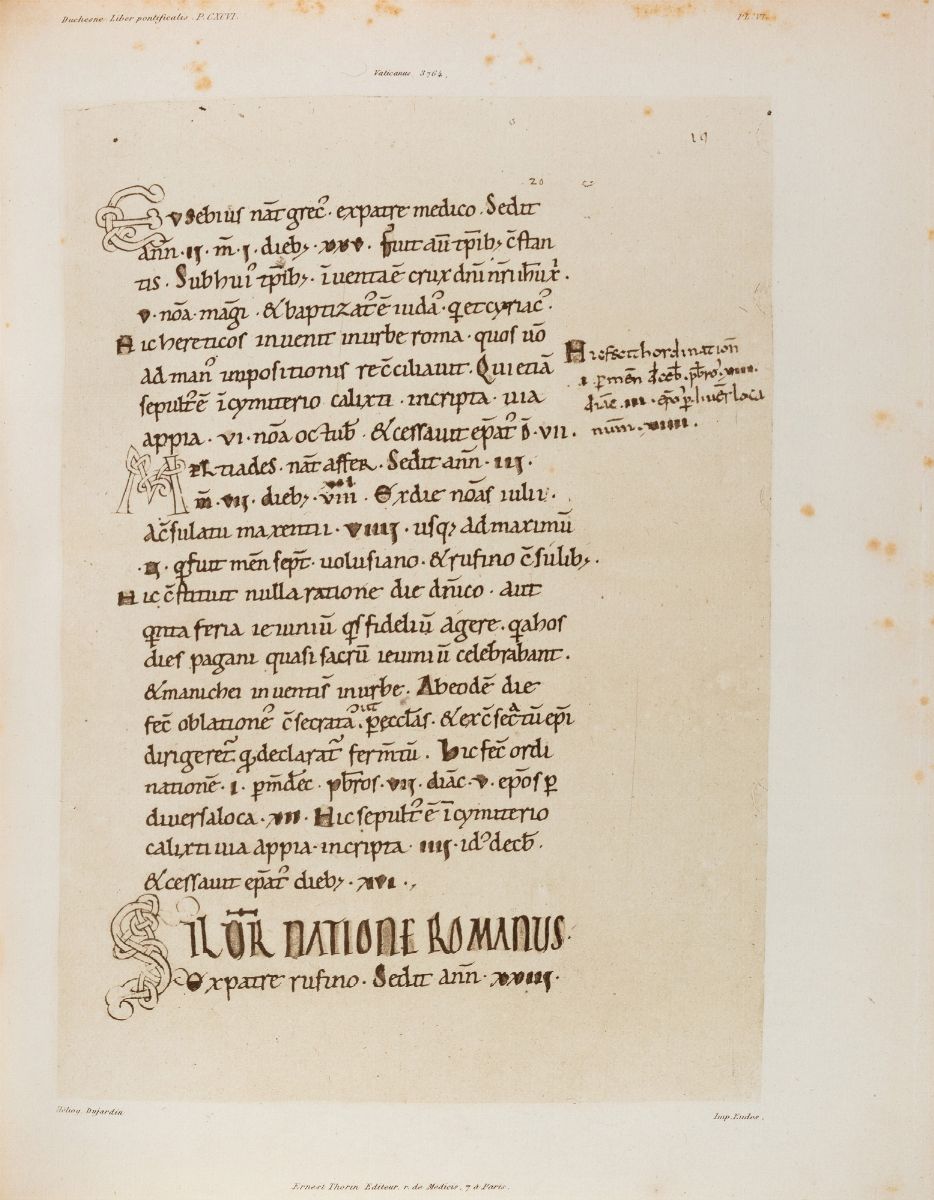 Duchesne Liber pontificalis. P. CXCVI.
PL. VI.
Vaticanus 3764.
19
20
Eusebius nat̄ grec̓ · ex patre medico · Sedit
ann̄ · ii · m̄ · i · dieb; · xxv · Fuit aū tp̄ib; c̄stan
tis · Sub hui̓ tp̄ib; · īuenta ē crux dn̄i nr̄i ih̄u xp̄i ·
v · nōa · magi · & baptizat̓ ē iuda̓ · q̄ et cyriac̓ ·
Hic hereticos inuenit in urbe roma · quos uō
ad man̓ impositionis rec̄ciliauit · Qui etiā
sepult̓ ē ī cymiterio calixti · incripta · uia
appia · vi · nōa octub̄ · & cessauit ep̄at̓ d̄ · vii ·
Hic fecit hordination̄
i · p̱ mēn dēceb̄ · pb̄ro̓ · xiii ·
diac̄ · iii · ep̄o p̱ diuēr loca
num̄ · xiiii ·
Meltiades · nat̄ affer · Sedit ann̄ · iii ·
m̄ · vii · dieb; · viiii · Ex die nōas iulii ·
A c̄sulatu maxentii · viiii · usq; ad maximū
· ii · q̄ fuit mēn sept̄ · uolusiano · & rufino c̄sulib; ·
Hic c̄stituit nulla ratione die dn̄ico · aut
q̄nta feria ieiuniū q̄s fideliū agere · q̄a hos
dies pagani quasi sacrū ieiuniū celebrabant ·
& manichei inuenti s̄ in urbe · Ab eodē die
fec̄ oblatione̓ c̄secrata · p̱ eccl̄as · & ex c̄secͣtū ep̄i
dirigeret̄ · q; declarat̄ ferm̄tū · Hic fec̄ ordi
nationē · i · p̱ m̄ dec̄ · pb̄ros · vii · diāc · v · ep̄os p̱
diuersa loca · xii · Hic sepult̓ ē ī cymiterio
calixti uia appia · incripta · iiii · id̓ decb̄ ·
& cessauit ep̄at̓ dieb; · xvi ·,
SILŪR NATIONE ROMANUS ·
Ex patre rufino · Sedit ann̄ · xxiii ·
Héliog. Dujardin
Imp. Eudes.
Ernest Thorin Editeur, r. de Médicis, 7 à Paris.